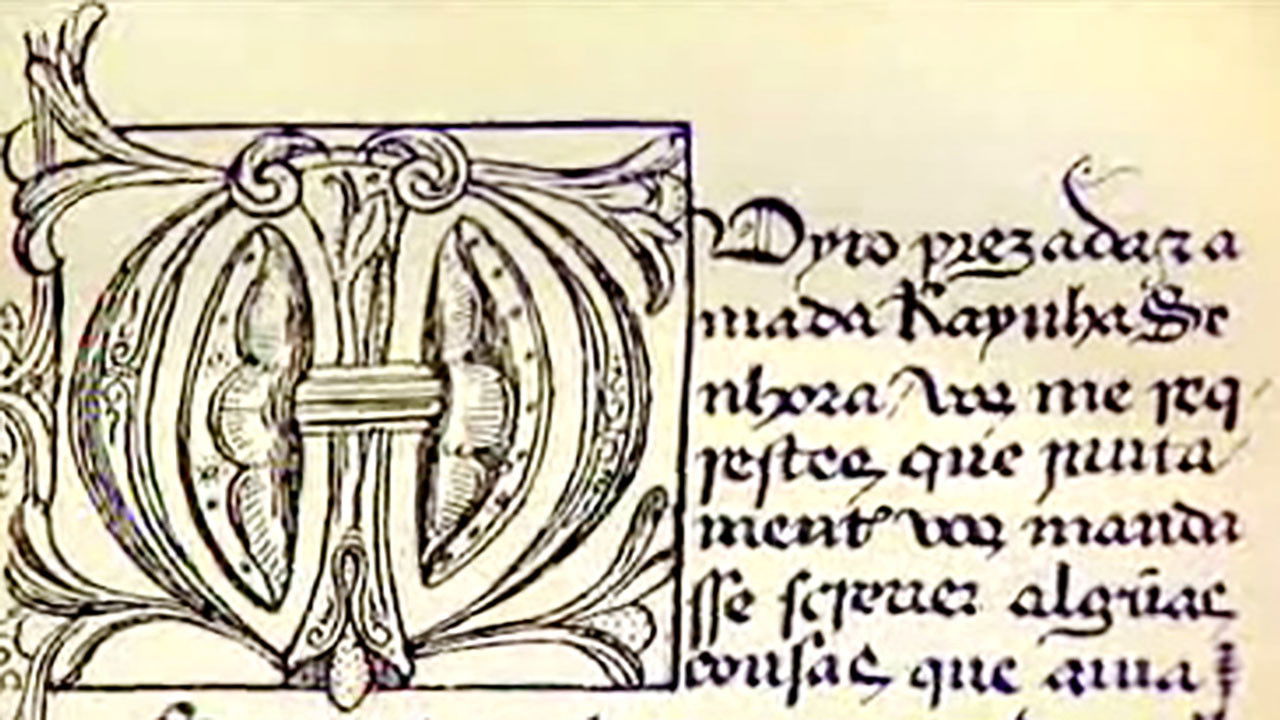 Muyto prezada z a
mada Raynha Se
nhora Vos me req
restes que junta
ment vos manda
sse screuer algũas
cousas que